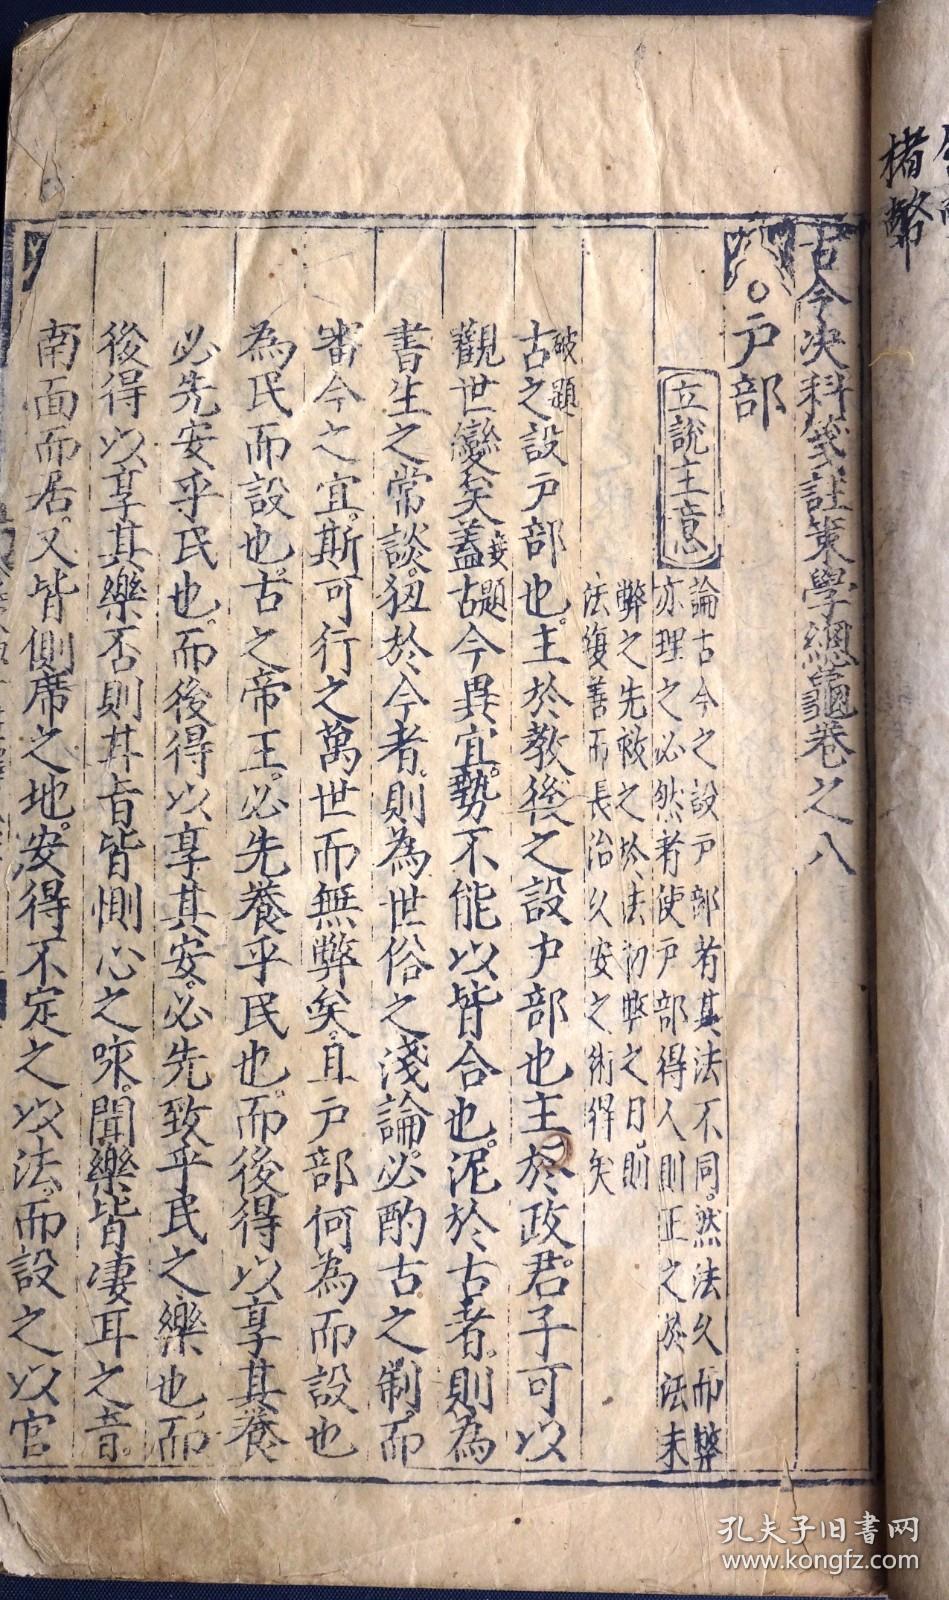 楮幣
古今决科箋註策學總龜卷之八
○戸部
立說主意
論古今之設戸部有其法不同。然法久而弊
亦理之必然者使戸部得人則正之於法未
弊之先救之於法初弊之日。則
法復善而長治久安之術得矣
破題
古之設戸部也。主於敎後之設戸部也主於政君。子可以
觀世變矣蓋古今異宜。勢不能以皆合也。泥於古者。則為
接題
書生之常談。狃於今者。則為世俗之淺論。必酌古之制。而
審今之宜。斯可行之萬世而無弊矣。且戸部何為而設也
為民而設也。古之帝王。必先養乎民也。而後得以享其養
必先安乎民也。而後得以享其安。必先致乎民之樂也而
後得以享其樂否則其旨皆惻心之味。聞樂皆凄耳之音。
南面而居。又皆側席之地。安得不定之以法。而設之以官
孔夫子旧書网
www.kongfz.com